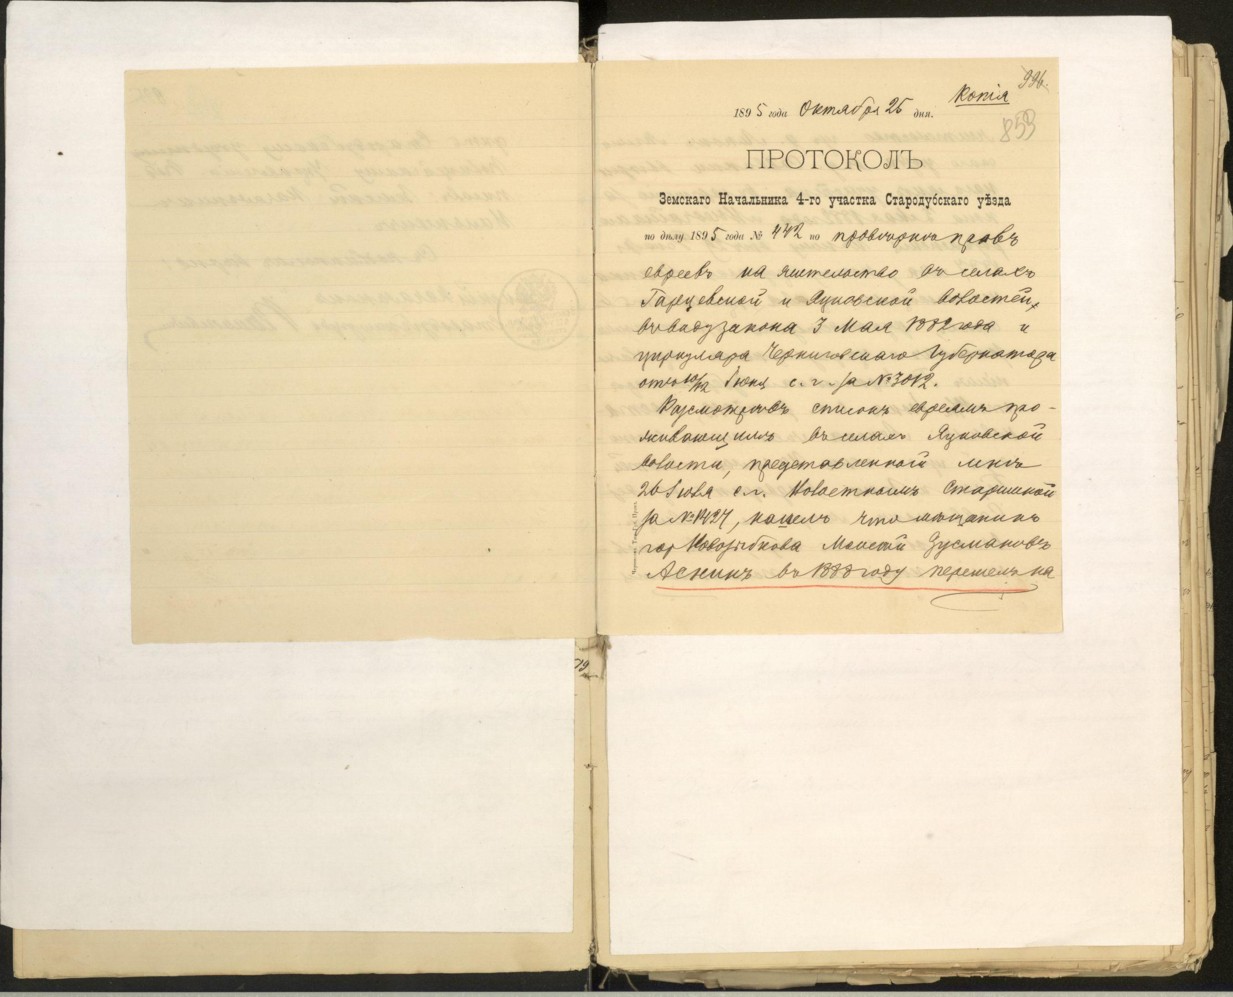 996.
Копія
1895 года Октября 25 дня.
853
ПРОТОКОЛЪ
Земскаго Начальника 4-го участка Стародубскаго уѣзда
по дѣлу 1895 года № 442 по провѣрке правъ
евреевъ на жительство въ селахъ
Гарцевской и Яцковской волостей,
въ виду закона 3 Мая 1882 года и
циркуляра Черниговскаго Губернатора
отъ 10/12 Іюня с. г. за № 3012.
Разсмотрѣвъ списокъ евреямъ про-
живающимъ въ селахъ Яцковской
волости, представленной мнѣ
26 Іюля с. г. Волостнымъ Старшиной
за № 1427, нашелъ что мѣщанинъ
гор Новозыбкова Моисей Зусмановъ
Аснинъ въ 1888 году перешелъ на
19